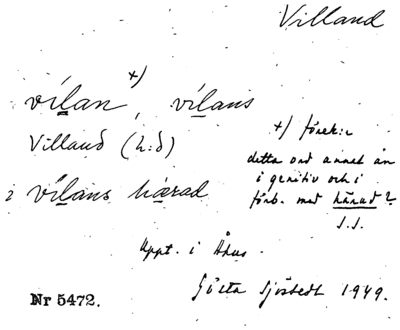 Villand
vílan +), vílans
Villand (h:d)
i vílans härad
+) förek:r
detta ord annat än
i genitiv och i
förb. med härad?
S.S.
Uppt. i Åhus.
Gösta Sjöstedt 1949.
Nr 5472.